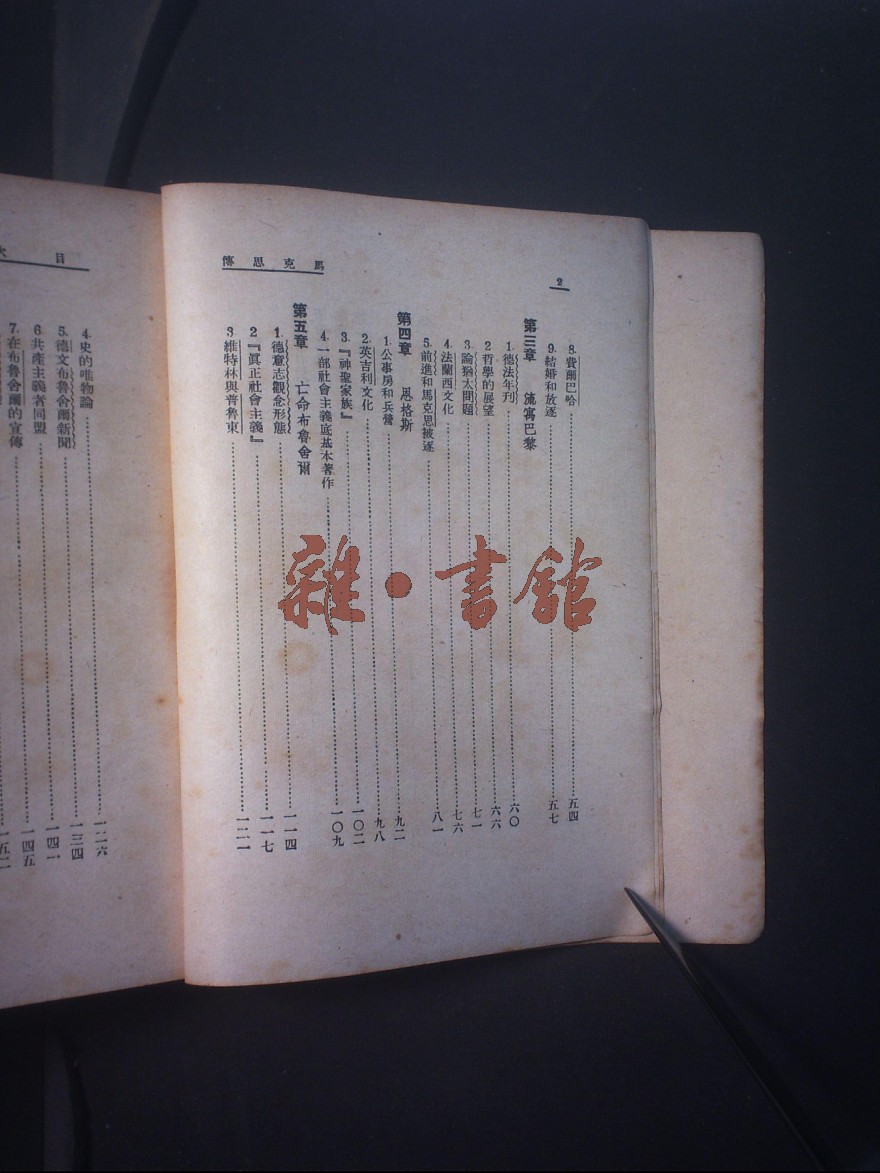 馬克思傳
2
8. 費爾巴哈……五四
9. 結婚和放逐……五七
第三章 流寓巴黎
1. 德法年刊……六〇
2 哲學的展望……六六
3. 論猶太問題……七一
4. 法蘭西文化……七六
5. 前進和馬克思被逐……八一
第四章 恩格斯
1. 公事房和兵營……九二
2. 英吉利文化……九八
3.『神聖家族』……一〇二
4. 一部社會主義底基本著作……一〇九
第五章 亡命布魯舍爾
1. 德意志觀念形態……一一四
2『眞正社會主義』……一一七
3 維特林與普魯東……一二一
目
4. 史的唯物論……一二六
5. 德文布魯舍爾新聞……一三四
6. 共產主義者同盟……一四一
7. 在布魯舍爾的宣傳……一四五
雜·書館